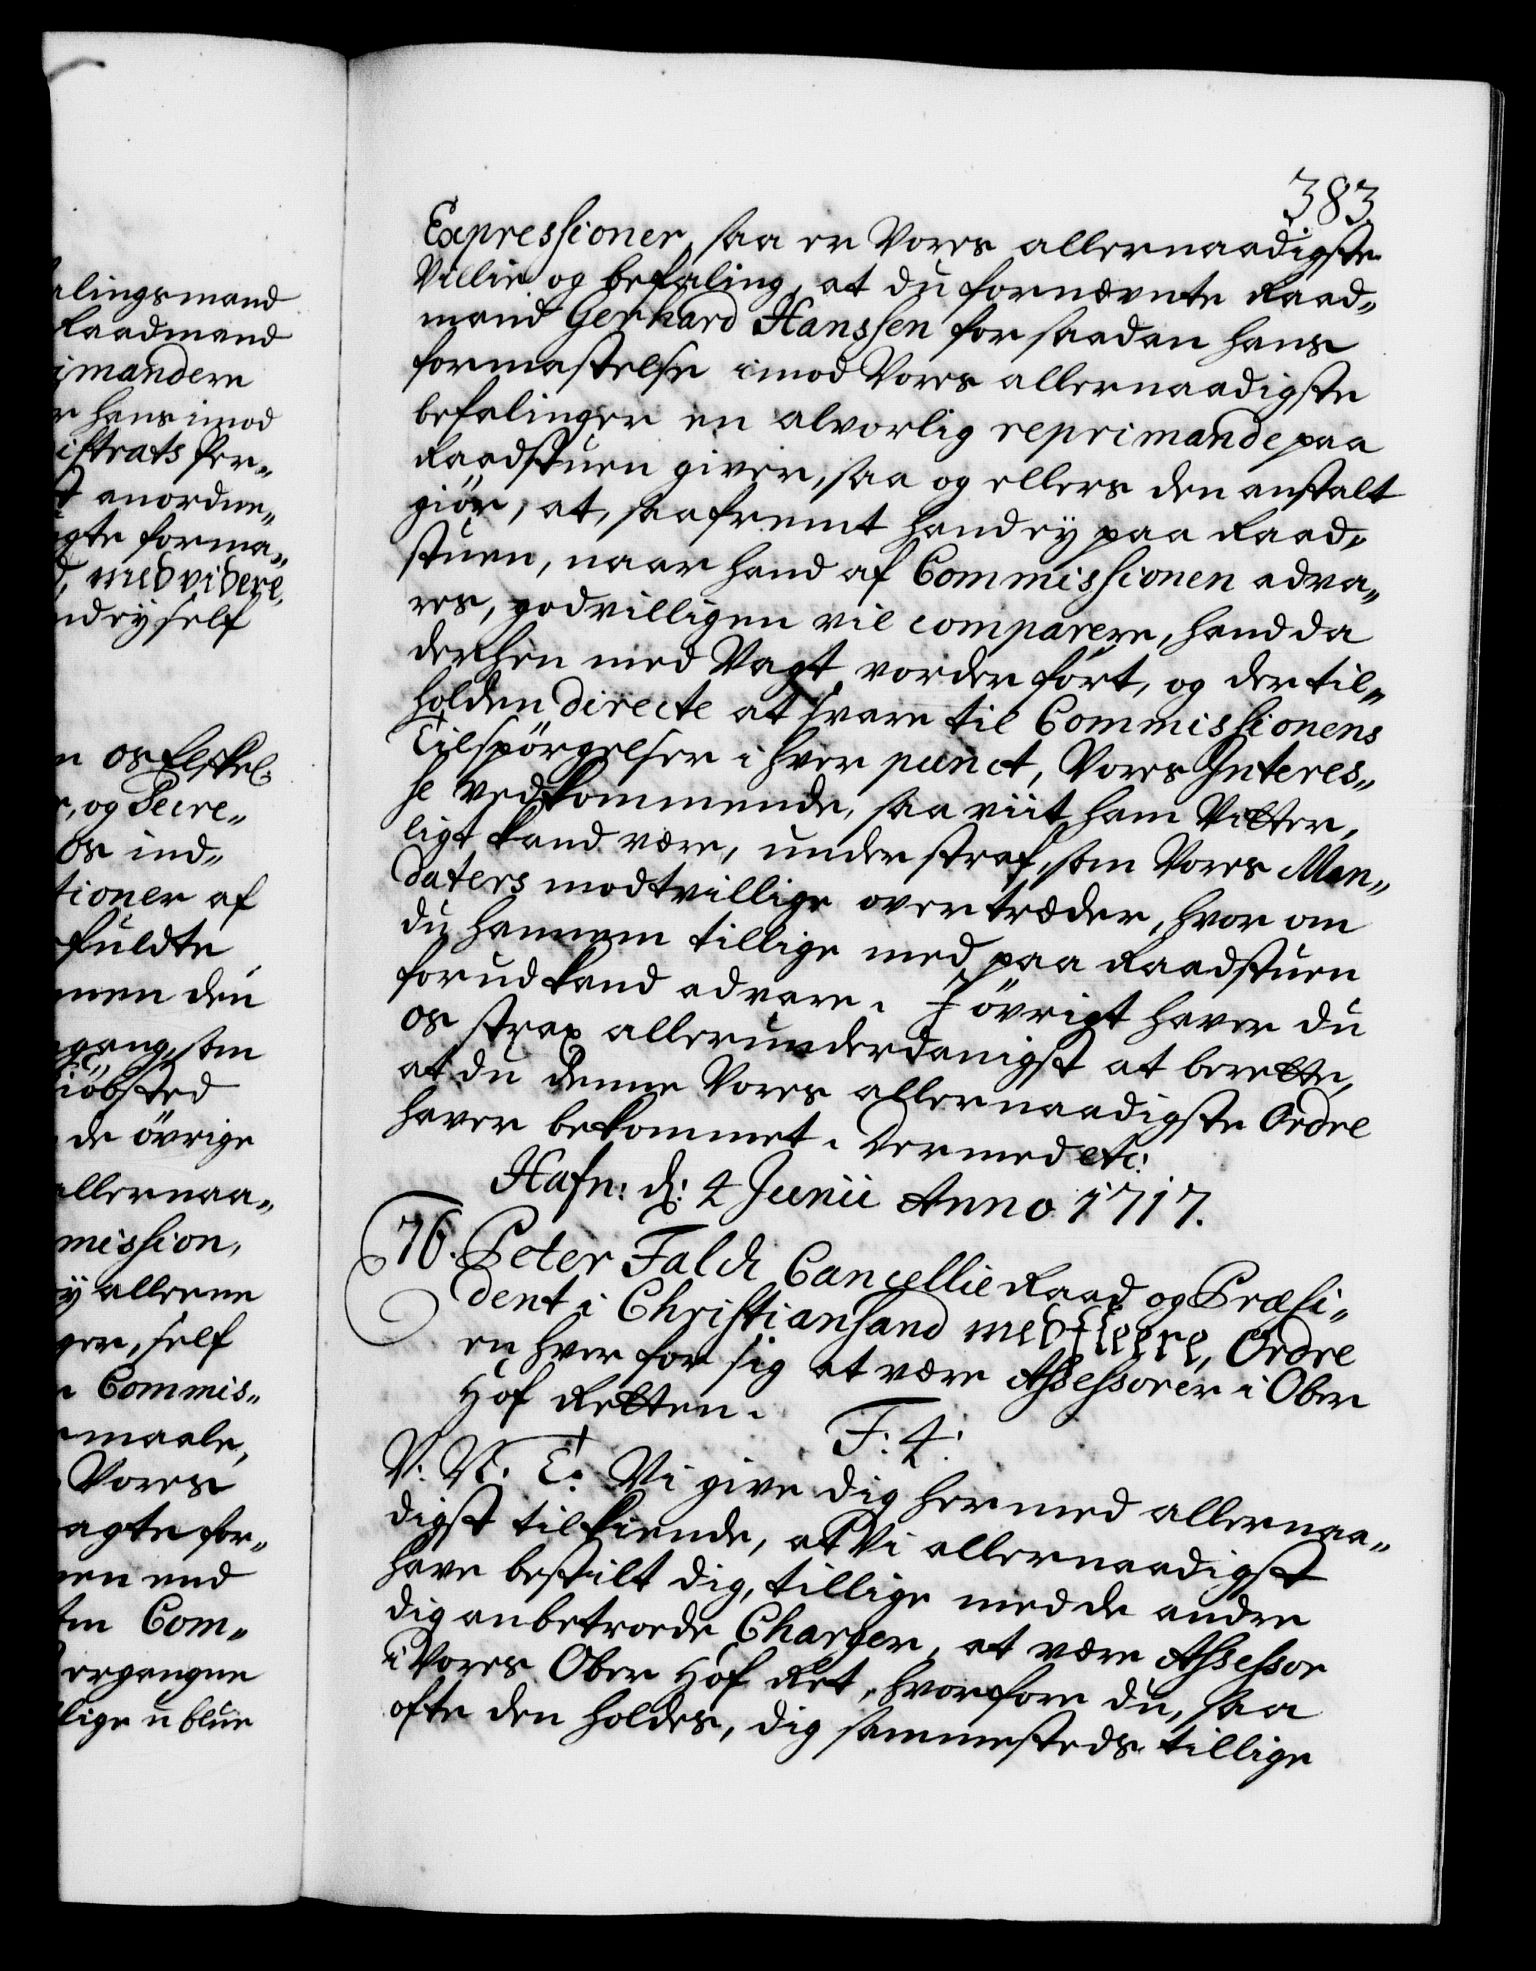 383
Expressioner, saa er Vores allernaadigste
Villie og befaling, at du fornævnte Raad„
mand Gerhard Hanssen for saadan hans
formastelse imod Vores allernaadigste
befalinger en alvorlig reprimande paa
Raadstuen giver, saa og ellers den anstalt
giör, at, saafremt hand ey paa Raad„
stuen, naar hand af Commissionen adva„
res, godvilligen vil comparere, hand da
derhen med Vagt vorder fört, og der til„
holden directe at svare til Commissionens
Tilspörgelser i hver punct, Vores Interes„
se vedkommende, saa viit ham Vitter„
ligt kand være, under straf, som Vores Man„
daters modtvillige overtræder, hvor om
du hannem tillige med paa Raadstuen
forud kand advare. I övrigt haver du
os strax allerunderdanigst at berette,
at du denne Vores allernaadigste Ordre
haver bekommet. Dermed etc:
Hafn: d: 4 Junii Anno 1717.
76. Peter Falch Cancellie Raad og Præsi„
dent i Christiansand med fleere, Ordre
en hver for sig at være Assessorer i Ober
Hof Retten.
F: 4:
V: N: T: Vi give dig hermed allernaa„
digst tilkiende, at Vi allernaadigst
have bestilt dig, tillige med de andre
dig anbetroede Charger, at være Assessor
i Vores Ober Hof Ret, hvorfore du, saa
ofte den holdes, dig sammesteds tillige
alingsmand
Raadmand
imandere
r hans imod
istrats Per„
st anordne„
gte forma„
d, med videre,
nd ey self
n os Elskel:
r, og Secre„
Os ind„
tioner af
fuldte
men den
gang, som
iöbsted
de övrige
allernaa„
mission,
y alleene
ger, self
n Commis„
maale,
Vores
agte for„
en end
ten Com„
ergangne
lige u blue